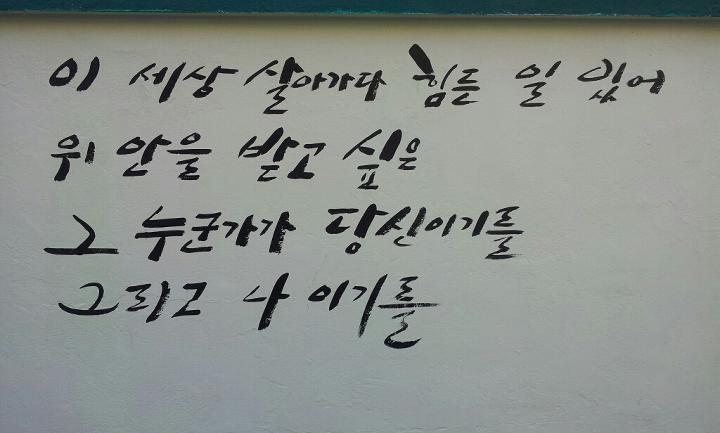 이 세상 살아가다 힘든 일 있어
위안을 받고 싶은
그 누군가가 당신이기를
그리고 나 이기를